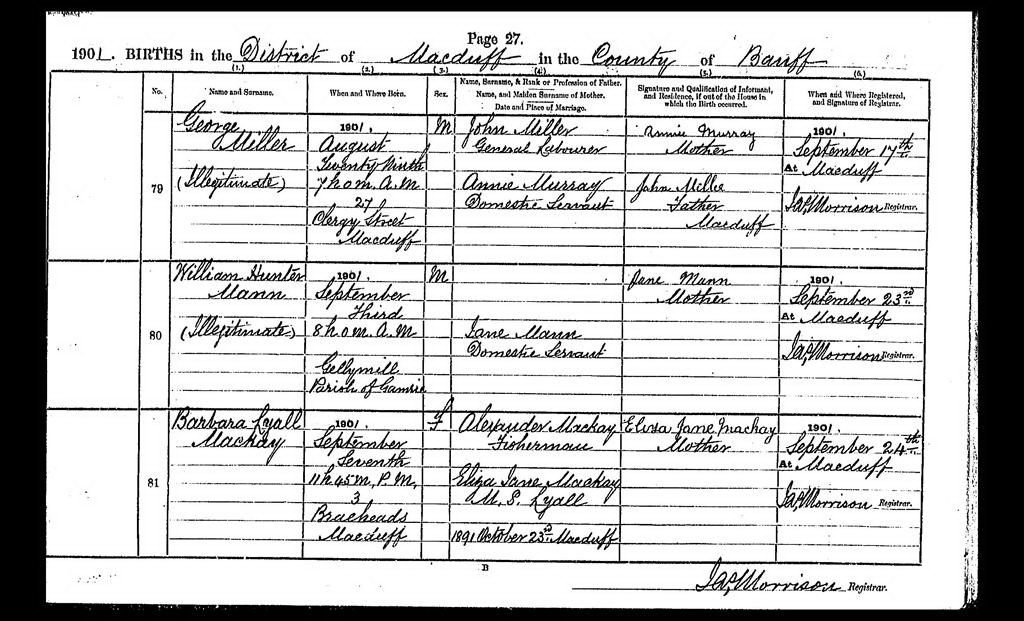 Page 27.
1901. BIRTHS in the District of Macduff in the County of Banff
(1.) (2.) (3.) (4.) (5.) (6.)
No.
Name and Surname.
When and Where Born.
Sex.
Name, Surname, & Rank or Profession of Father.
Name, and Maiden Surname of Mother.
Date and Place of Marriage.
Signature and Qualification of Informant,
and Residence, if out of the House in
which the Birth occurred.
When and Where Registered,
and Signature of Registrar.
79
George
Miller
(Illegitimate)
1901.
August
Twenty Ninth
7 h 0 m. A.M.
27
Clergy Street
Macduff
M
John Miller
General Labourer
Annie Murray
Domestic Servant
Annie Murray
Mother
John Miller
Father
Macduff
1901.
September 17th
At Macduff
Jas Morrison Registrar.
80
William Hunter
Mann
(Illegitimate)
1901.
September
Third
8 h 0 m. A.M
Gellymill
Parish of Gamrie
M
Jane Mann
Domestic Servant
Jane Mann
Mother
1901.
September 23rd
At Macduff
Jas Morrison Registrar.
81
Barbara Lyall
Mackay
1901.
September
Seventh
11 h 45 m. P.M.
3
Braeheads
Macduff
F
Alexander Mackay
Fisherman
Eliza Jane Mackay
M.S. Lyall
1891 October 23rd Macduff
Eliza Jane Mackay
Mother
1901.
September 24th
At Macduff
Jas Morrison Registrar.
B
Jas Morrison Registrar.